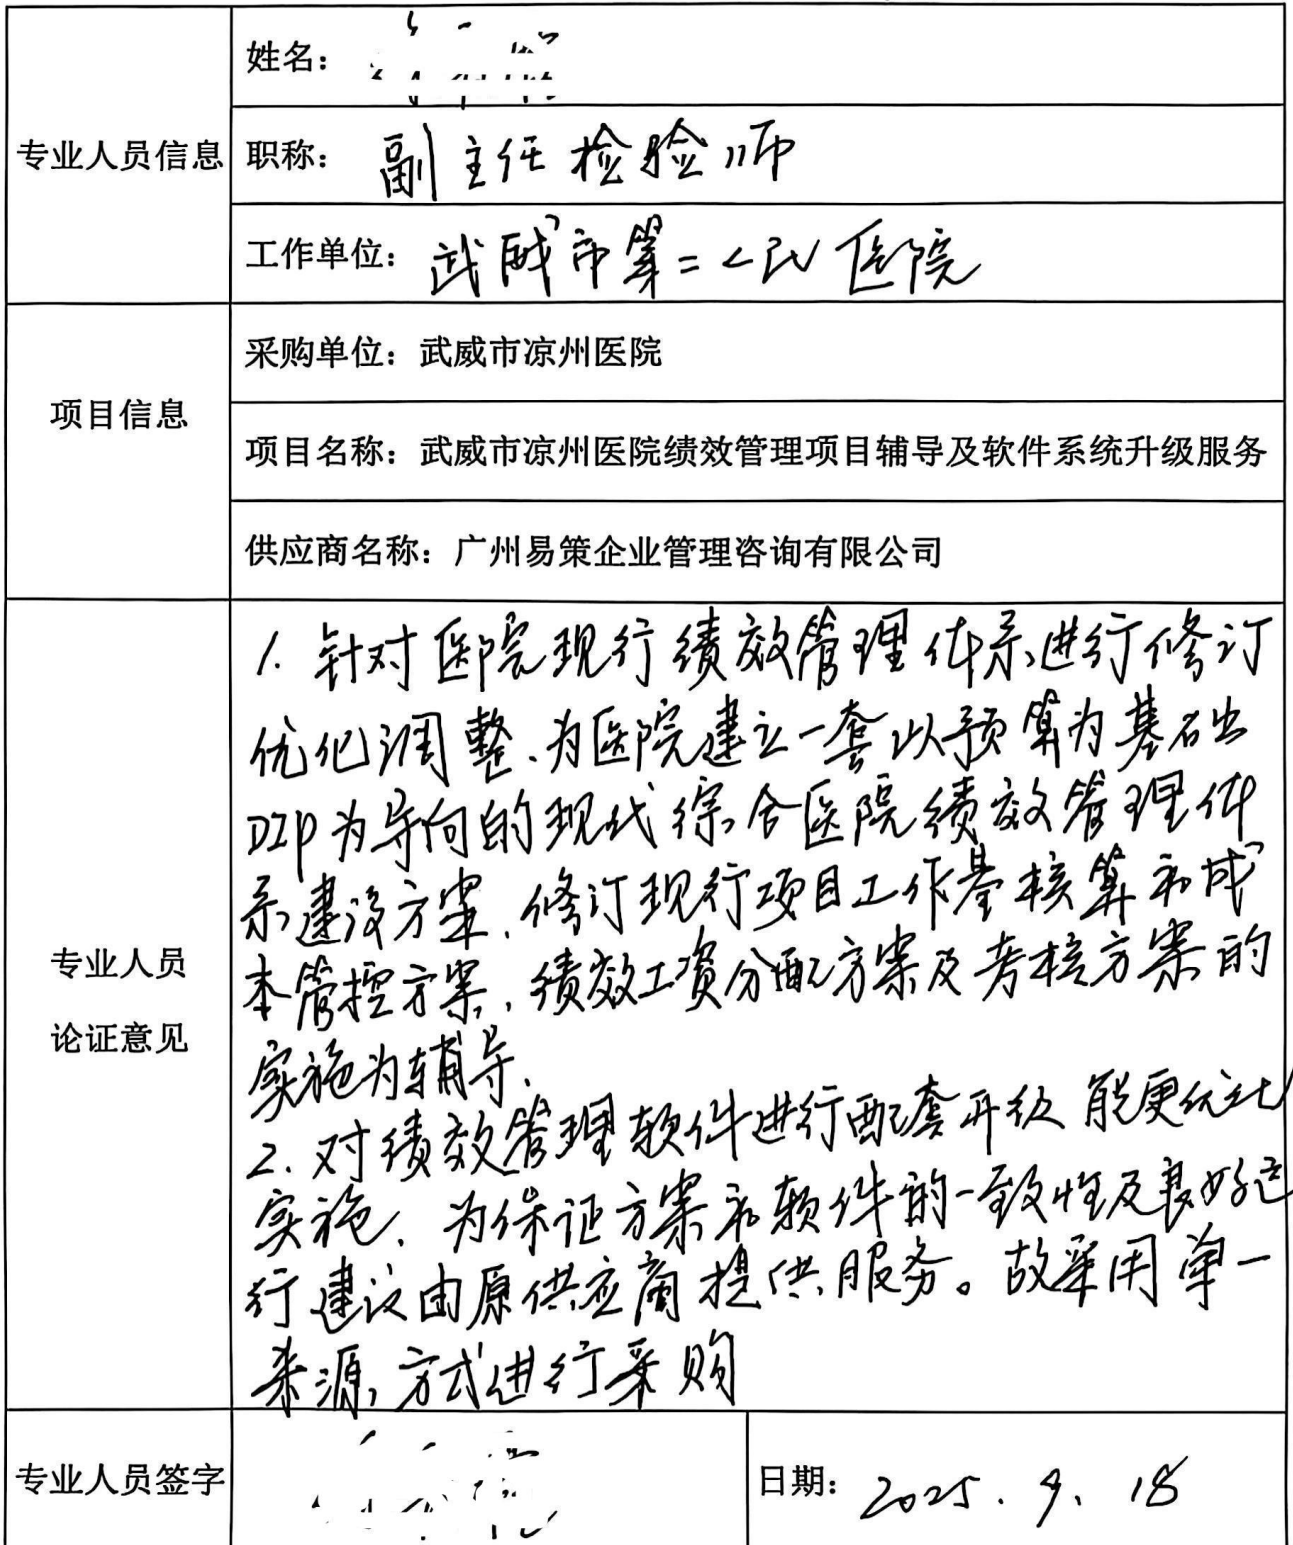 专业人员信息
姓名：
职称： 副主任检验师
工作单位： 武威市第二人民医院
项目信息
采购单位：武威市凉州医院
项目名称：武威市凉州医院绩效管理项目辅导及软件系统升级服务
供应商名称：广州易策企业管理咨询有限公司
专业人员
论证意见
1. 针对医院现行绩效管理体系进行修订
优化调整、为医院建立一套以预算为基础
DIP为导向的现代综合医院绩效管理体
系建设方案，修订现行项目工作量核算和成
本管控方案，绩效工资分配方案及考核方案的
实施为辅导.
2. 对绩效管理软件进行配套升级 能更
实施. 为保证方案和软件的一致性及良好运
行建议由原供应商提供服务。故采用单一
来源方式进行采购
专业人员签字
日期： 2025. 9. 18